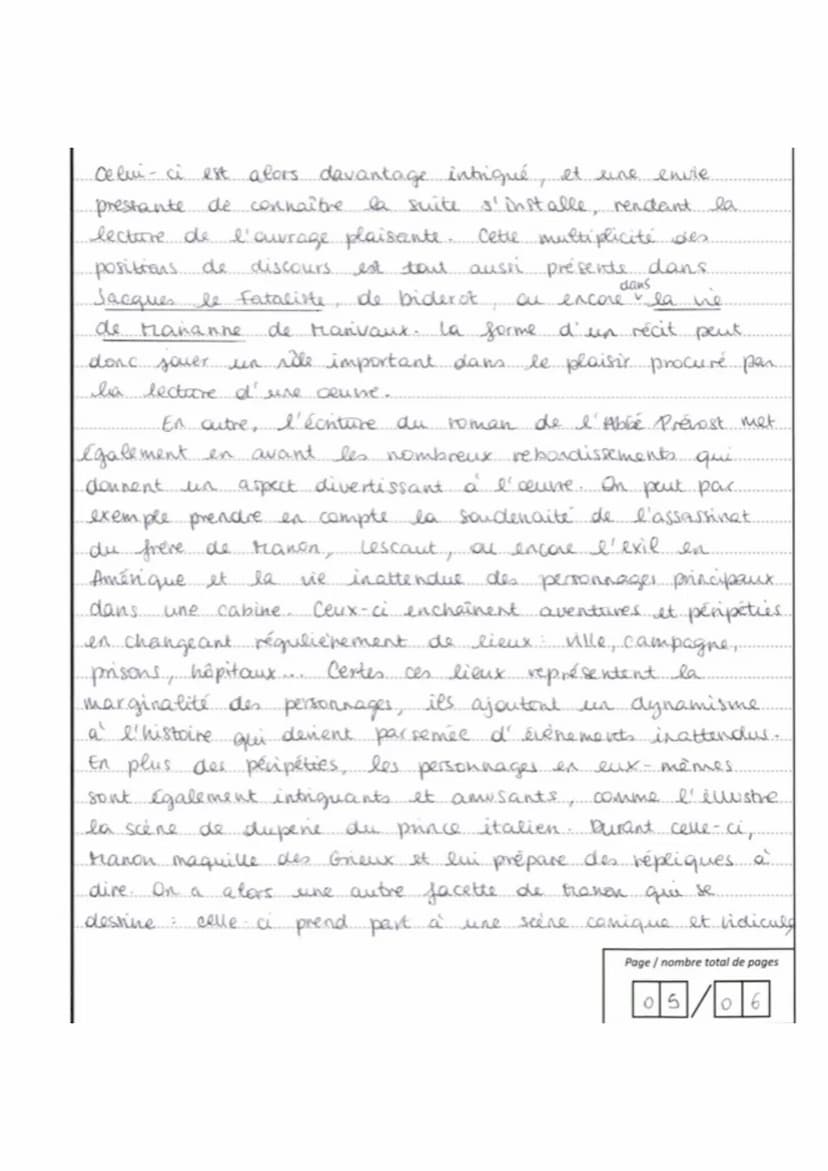 Celui-ci est alors davantage intrigué, et une envie
pressante de connaître la suite s'installe, rendant la
lecture de l'ouvrage plaisante. Cette multiplicité des
positions de discours est tout aussi présente dans
Jacques le Fataliste, de Diderot, ou encore dans la vie
de Marianne de Marivaux. La forme d'un récit peut
donc jouer un rôle important dans le plaisir procuré par
la lecture d'une œuvre.
En outre, l'écriture du roman de l'Abbé Prévost met
également en avant les nombreux rebondissements qui
donnent un aspect divertissant à l'œuvre. On peut par
exemple prendre en compte la soudenaité de l'assassinat
du frère de Manon, Lescaut, ou encore l'exil en
Amérique et la vie inattendue des personnages principaux
dans une cabine. Ceux-ci enchaînent aventures et péripéties
en changeant régulièrement de lieux : ville, campagne,
prisons, hôpitaux... Certes ces lieux représentent la
marginalité des personnages, ils ajoutent un dynamisme
à l'histoire qui devient parsemée d'évènements inattendus.
En plus des péripéties, les personnages en eux-mêmes
sont également intriguants et amusants, comme l'illustre
la scène de duperie du prince italien. Durant celle-ci,
Manon maquille des Grieux et lui prépare des répliques à
dire. On a alors une autre facette de Manon qui se
dessine : celle-ci prend part à une scène comique et ridicule
Page / nombre total de pages
05/06